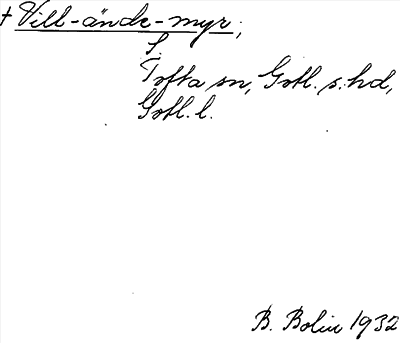 † Vill-ände-myr;
S.
Tofta sn, Gotl. s. hd,
Gotl. l.
B. Bolin 1932